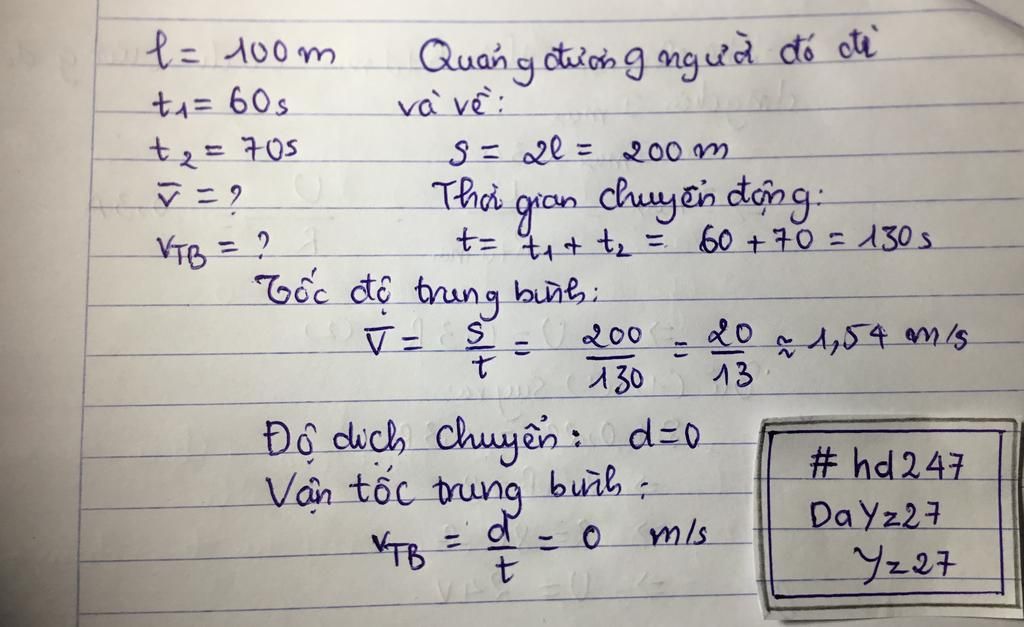 l = 100m Quáng đường người đó đi
t1 = 60s và về:
t2 = 70s s = 2l = 200 m
v̅ = ? Thời gian chuyển động:
vTB = ? t = t1 + t2 = 60 + 70 = 130 s
Tốc độ trung bình:
v̅ = s/t = 200/130 = 20/13 ≈ 1,54 m/s
Độ dịch chuyển: d=0
Vận tốc trung bình:
vTB = d/t = 0 m/s
# hd247
DaYz27
Yz27